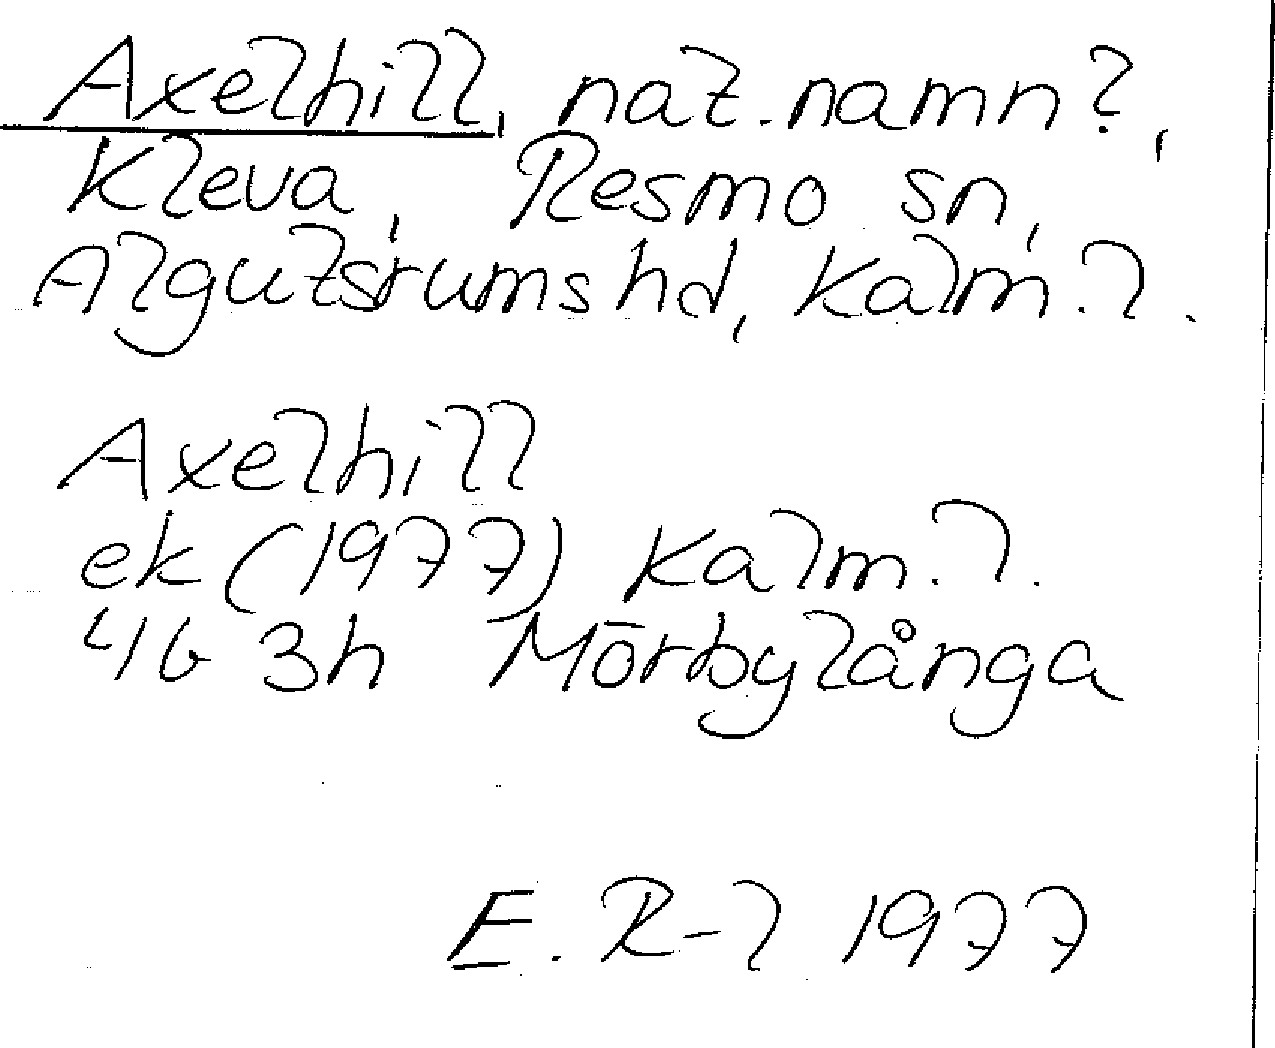 Axelhill, nat. namn?,
Kleva, Resmo sn,
Algutsrums hd, Kalm. l.
Axelhill
ek (1977) Kalm. l.
4G 3h Mörbylånga
E. R-l 1977